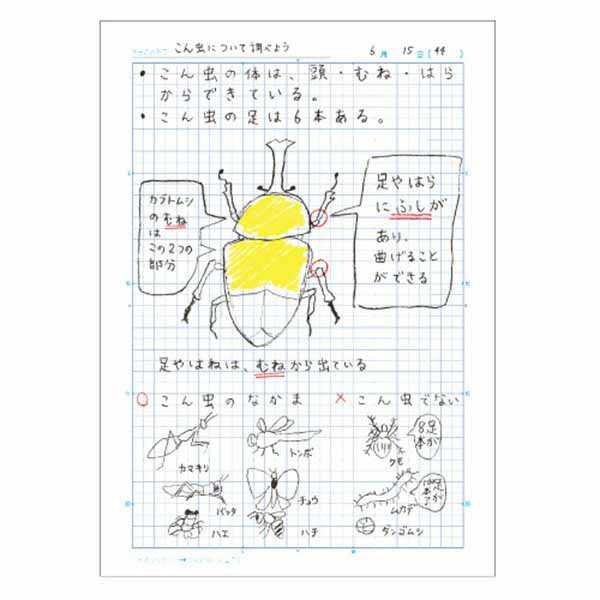 こん虫について調べよう 6月 15日(44)
・こん虫の体は、頭・むね・はら
からできている。
・こん虫の足は6本ある。
カブトムシ
のむね
は
この2つの
部分
足やはら
にふしが
あり、
曲げること
ができる
足やはねは、むねから出ている
○こん虫のなかま
×こん虫でない
カマキリ
トンボ
バッタ
チョウ
ハエ
ハチ
クモ
8本足が
ムカデ
ダンゴムシ